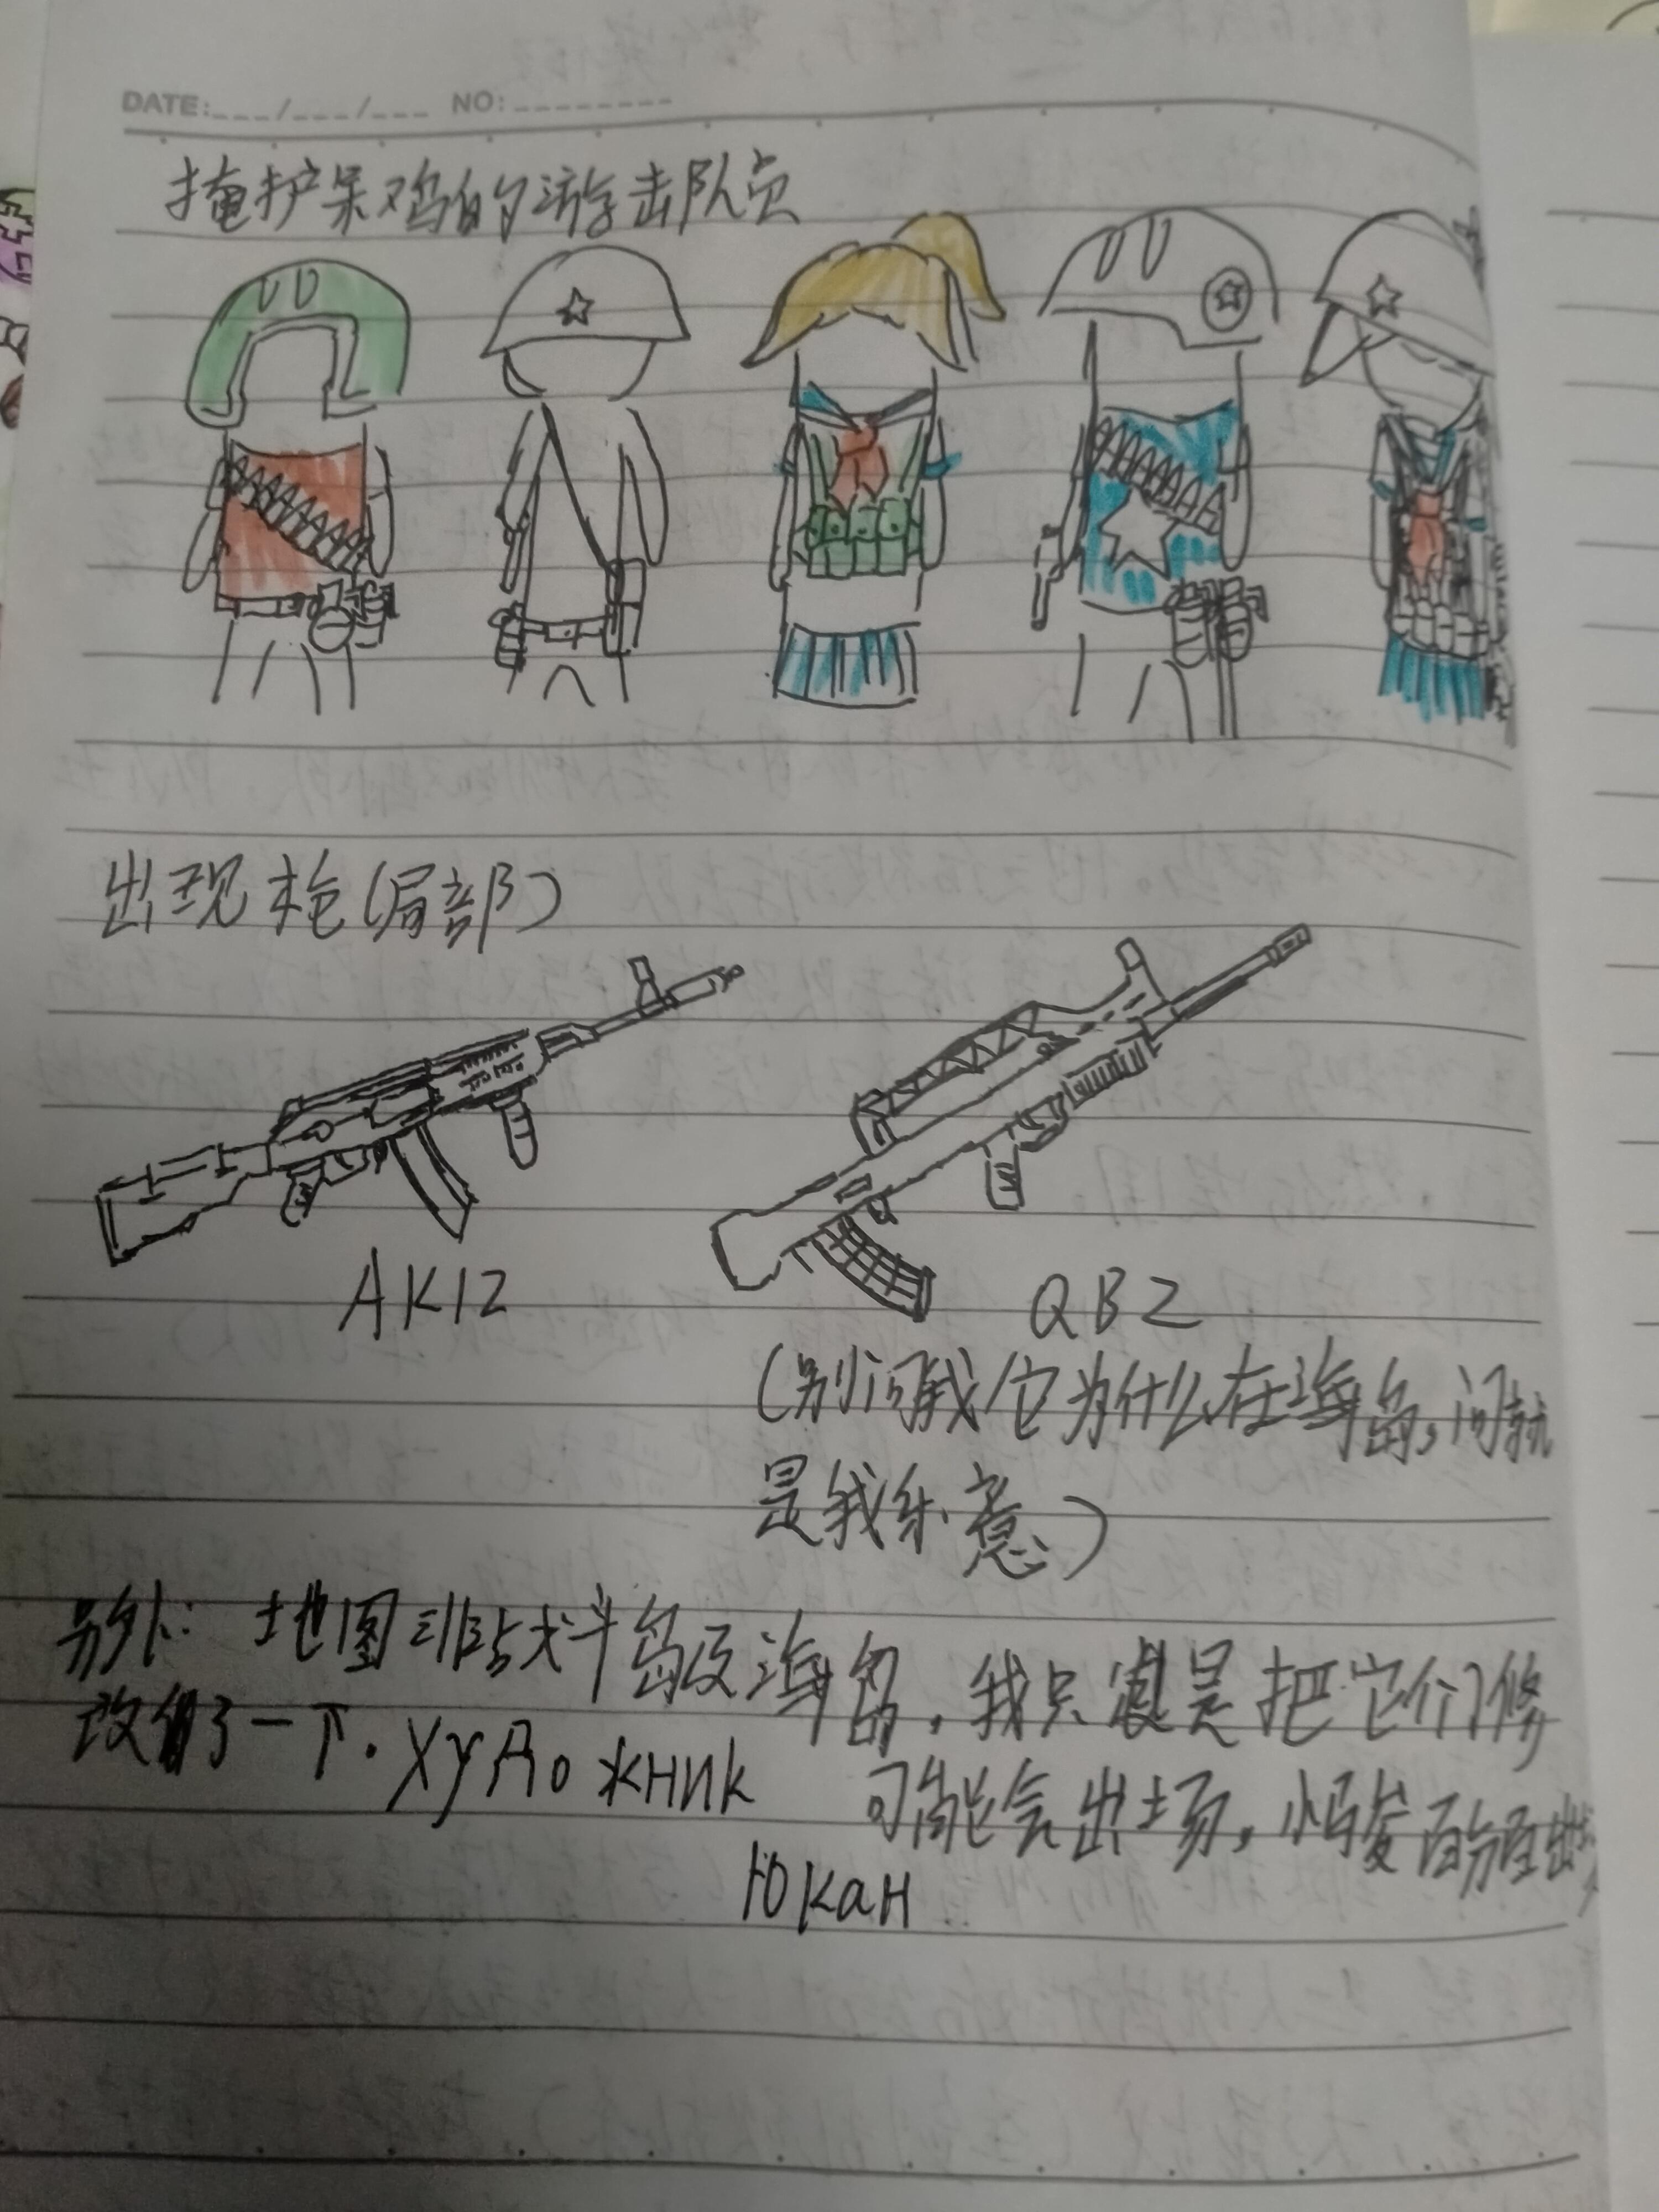 DATE:___/___/___ NO:________
掩护呆鸡的游击队员
出现枪(局部)
AK12
QBZ
(别问我它为什么在海岛,问就
是我乐意)
另外: 地图非战斗岛及海岛,我只是把它们修
改了一下. Художник
可能会出场,小马爹百分百出
Юкан